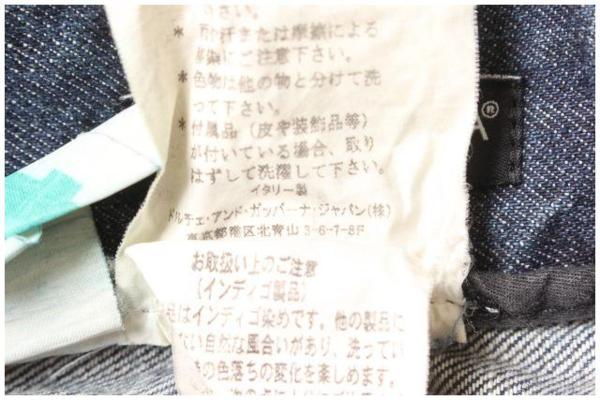 汗または摩擦による
にご注意下さい。
* 色物は他の物と分けて洗
って下さい。
* 付属品（皮や装飾品等）
が付いている場合、取り
はずして洗濯して下さい。
イタリー製
ドルチェ・アンド・ガッバーナ・ジャパン(株)
東京都港区北青山 3-6-7-8F
A®
お取扱い上のご注意
(インディゴ製品)
はインディゴ染めです。他の製品に
ない自然な風合いがあり、洗ってい
の色落ちの変化を楽しめます。